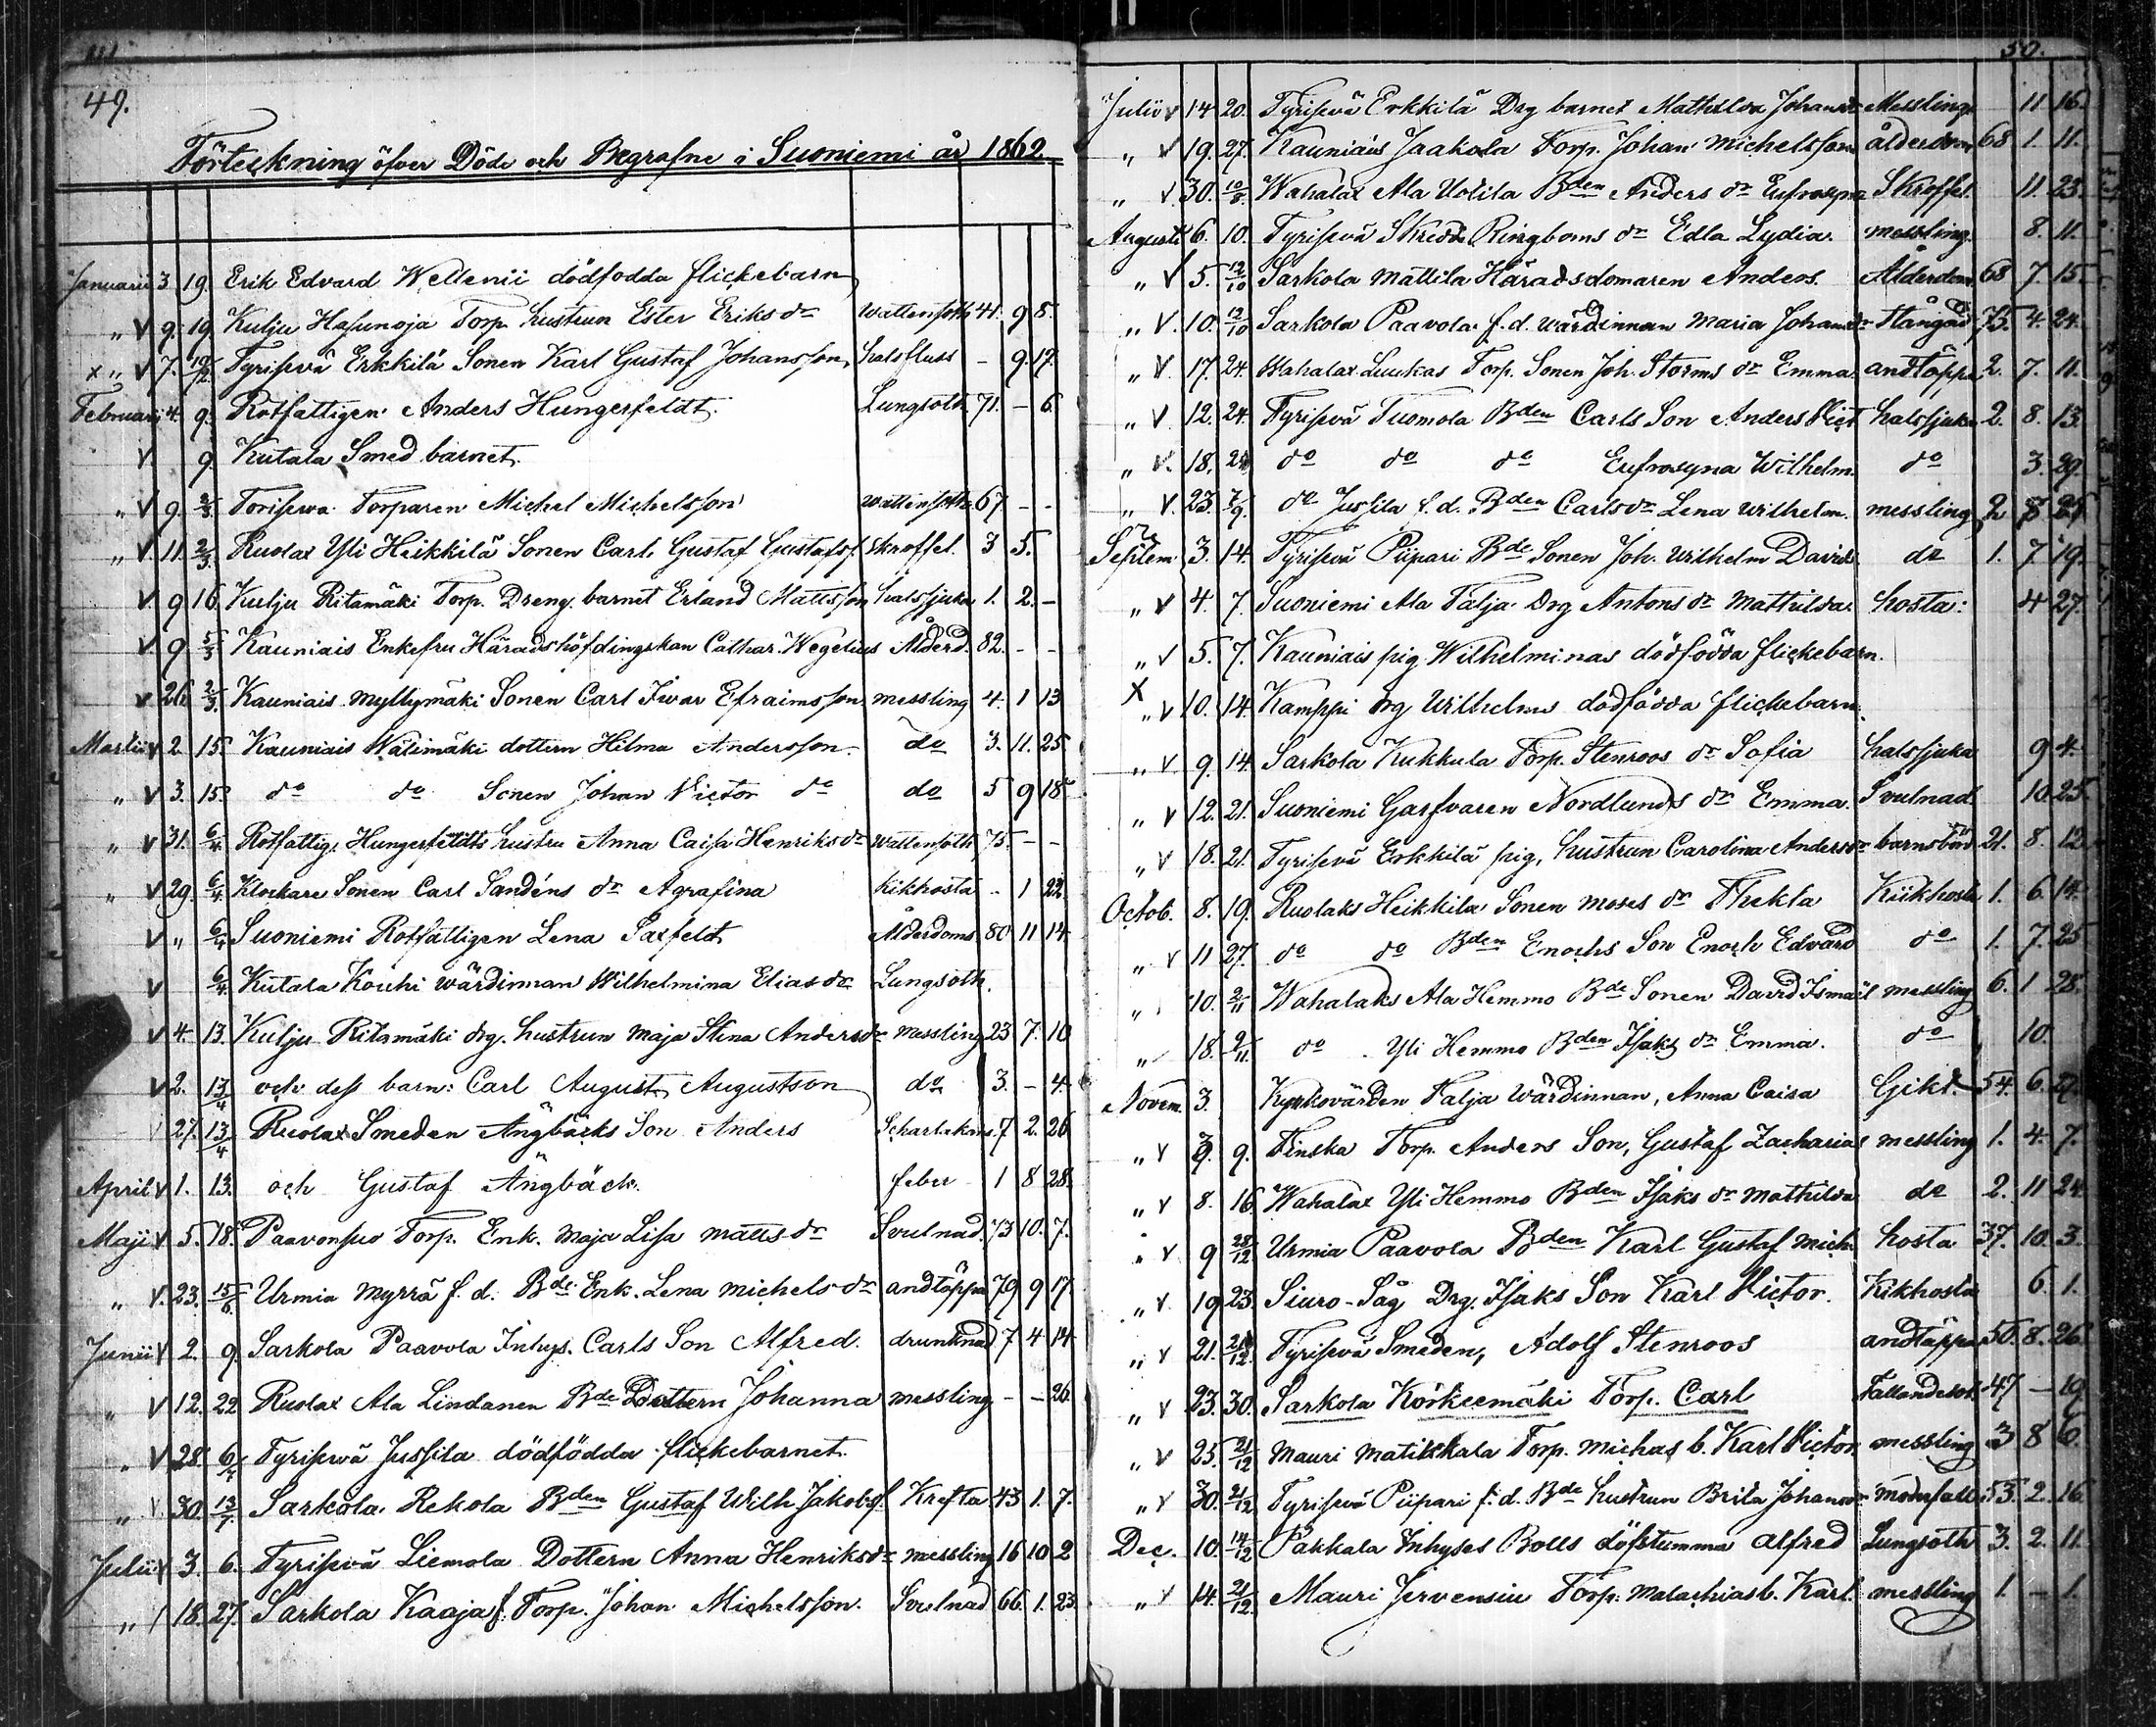 49.
Förteckning öfver Döde och Begrafne i Suoniemi år 1862.
Januarii 3 19. Erik Edvard Wellenii dödfodda flickebarn
" V 9. 19 Kulju Hasunoja Torp. hustrun Ester Eriks dr Wattensoth 41. 9 8.
x " V 7. 19/2 Tyrisevä Erkkilä Sonen Karl Gustaf Johansson halsfluss - 9. 17.
Februari 4. 9. Rotfattigen Anders Hungerfeldt. Lungsoth 71. - 6.
V 9 Kutala Smed barnet.
" V 9. 2/3 Torisewa Torparen Michel Michelsson Wattensoth 67 - -
" V 11. 2/3 Ruolax Yli Heikkilä Sonen Carl Gustaf Gustafss. Skroffel. 3 5.
V 9 16. Kulju Ritamäki Torp. Dreng. barnet Erland Mattsson halssjuka 1. 2. -
V 9 5/3 Kauniais Enkefru Häradshöfdingskan Cathar. Wegelius Ålderd. 82. - -
V 26 2/3. Kauniais Myllymäki Sonen Carl Iwar Efraimsson messling 4. 1 13
Martii V 2 15. Kauniais Wälimäki dottern Hilma Andersson. do 3. 11. 25.
" V 3. 15. do do Sonen Johan Victor do do 5 9 18
" V 31. 6/4 Rotfattig. Hungerfeldts hustru Anna Caisa Henriks dr Wattensoth 75. - -
" V 29. 6/4 Klockare Sonen Carl Sandéns dr Agrafina Kikhosta - 1 22.
V " 6/4 Suoniemi Rotfattigen Lena Saxfeldt Ålderdoms 80 11 14.
V 6/4. Kutala Kouhi wärdinnan Wilhelmina Elias dr Lungsoth.
V 4. 13. Kulju Ritamäki drg. hustrun Maja Stina Anders dr messling 23 7. 10
V 2. 13/4 och dess barn: Carl August Augustson do 3. - 4.
V 27. 13/4 Ruolax Smeden Ängbäcks Son Anders Scharlakans 7 2. 26
April V 1. 13. och Gustaf Ängbäck. feber 1 8 28.
Maji V 5. 18. Paavonsuo Torp. Enk. Maja Lisa Matts dr Svulnad. 73 10. 7.
" V. 23. 15/6. Urmia Myrrä f. d. Bde. Enk. Lena Michels dr andtäppa 79 9 17
Junii V 2. 9. Sarkola Paavola Inhys. Carls Son Alfred. drunknad 7 4 14
" V 12. 22 Ruolax Ala Lindanen Bde Dottern Johanna messling - - 26.
" V 28. 6/7 Tyrisevä Jussila dödfödda flickebarnet.
" V. 30. 13/7. Sarkola Rekola Bden Gustaf Wilh. Jakobs. Krefta 43 1. 7.
Julii V 3. 6. Tyrisevä Liemola Dottern Anna Henriks dr messling 16 10 2
" V 18. 27. Sarkola Kaaja f. Torp. Johan Michelsson. Svulnad 66. 1. 23.
50.
Julii V 14 20. Tyrisevä Erkkilä Drg barnet Mathilda Johans dr Messling 11 16.
" V 19. 27. Kauniais Jaakola Torp. Johan Michelsson ålderdom 68 1. 11.
" V. 30. 10/8. Wahalax Ala Uotila Bden Anders dr Eufrosyna Skroffel. 11. 23.
Augusti 6. 10. Tyrisevä Skredd. Ringboms dr Edla Lydia. messling. 8. 11.
" V 5. 12/10 Sarkola Mattila Häradsdomaren Anders. Ålderdom 68 7. 15.
" V. 10. 12/10 Sarkola Paavola f. d. wärdinnan Maria Johans dr Stångåd 75. 4. 24.
" V. 17. 24. Wahalax Luukas Torp. Sonen Joh. Storms dr Emma. andtäppa 2. 7. 11.
" V 12. 24. Tyrisevä Tuomola Bden Carls Son Anders Vict. halssjuka 2. 8. 13.
" V. 18. 24 do do do Eufrosyna Wilhelm. do 3. 29.
" V. 23. 7/9. do Jussila f. d. Bden Carls dr Lena Wilhelm. messling 2 8 25
Septem. 3. 14. Tyrisevä Piipari Bde Sonen Joh. Wilhelm Davids. do 1. 7 19.
" V 4. 7. Suoniemi Ala Talja Drg Antons dr Mathilda hosta: 4 27.
" V 5. 7. Kauniais pig. Wilhelminas dödfödda flickebarn.
X " V 10. 14. Kamppi drg Wilhelms dödfödda flickebarn.
" V. 9. 14. Sarkola Kukkula Torp. Stenroos dr Sofia halssjuka 9 4.
" V 12. 21. Suoniemi Garfvaren Nordlunds dr Emma. Svulnad. 10. 25.
" V 18. 21. Tyrisevä Erkkilä pig, hustrun Carolina Anders dr barnsbörd 21. 8. 12
Octob. 8. 19. Ruolaks Heikkilä Sonen Moses dr Thekla Kikhosta 1. 6. 14.
" V 11 27. do do Bden Enochs Son Enoch Edvard do 1. 7. 25
" 10. 2/11 Wahalaks Ala Hemmo Bde Sonen David Ismaël messling 6. 1 28.
" 18. 2/11. do Yli Hemmo Bden Isaks dr Emma. do 10.
Novem. 3. Kyrkovärden Talja wärdinnan, Anna Caisa Gikt. 54. 6. 27
" V 3. 9. Finska Torp. Anders Son, Gustaf Zacharias messling 1. 4. 7.
" V 8. 16. Wahalax Yli Hemmo Bden Isaks dr Mathilda do 2. 11 24.
" V 9 28/12. Urmia Paavola Bden Karl Gustaf Mich. hosta 37. 10. 3.
" V. 19 23. Siuro-Såg Drg. Isaks Son Karl Victor. Kikhosta 6. 1.
" V 21. 21/12. Tyrisevä Smeden, Adolf Stenroos andtäppa 50. 8. 26
" V 23. 30. Sarkola Korkeemäki Torp. Carl Fallandesot. 47 - 19
" V 25. 21/12 Mauri Matikkala Torp. Michas b. Karl Victor messling 3 8 6
" V 30. 21/12. Tyrisevä Piipari f. d. Bde hustrun Brita Johans dr moderfall. 53. 2. 16.
Dec. 10. 14/12 Pakkala Inhyses Bolls döfstumma Alfred Lungsoth 3. 2. 11.
" V 14. 21/12. Mauri Jervensiu Torp. Malachias b. Karl messling 1. - 1.